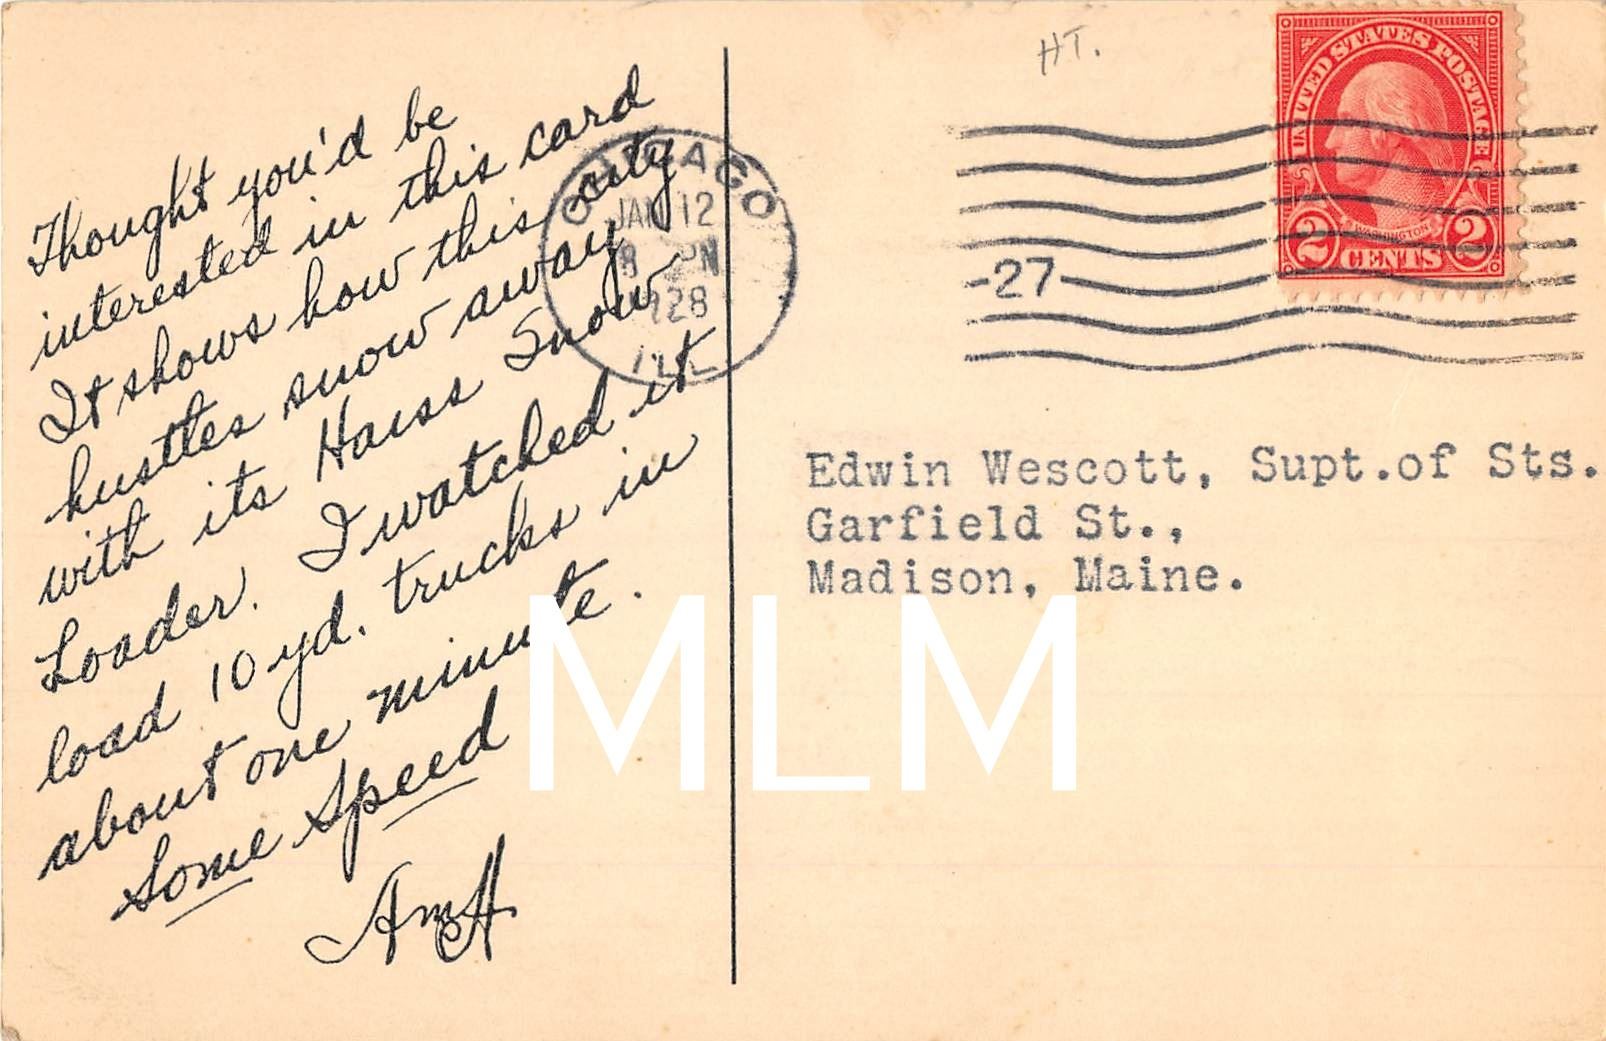 Thought you'd be
interested in this card
It shows how this city
hustles snow away
with its Haiss Snow
Loader. I watched it
load 10 yd. trucks in
about one minute.
Some Speed
AmH
HT.
CHICAGO
JAN 12
8 PM
1928
ILL
-27-
UNITED STATES POSTAGE
WASHINGTON
2 CENTS 2
Edwin Wescott, Supt.of Sts.
Garfield St.,
Madison, Maine.
MLM